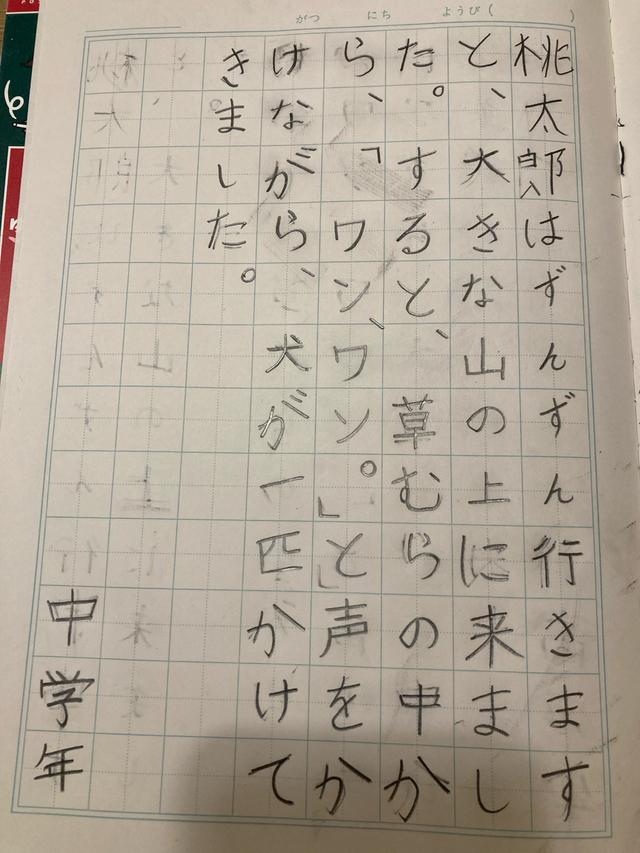 がつ にち ようび( )
桃太郎はずんずん行きます
と、大きな山の上に来まし
た。すると、草むらの中か
ら、「ワン、ワン。」と声をか
けながら、犬が一匹かけて
きました。
中学年